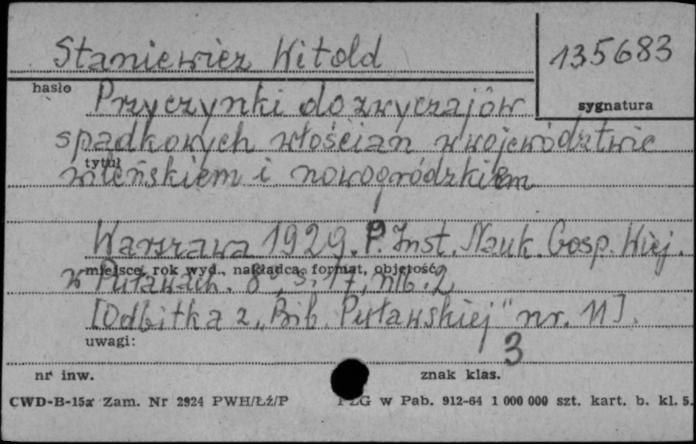 Staniewicz Witold
135683
hasło
Przyczynki do zwyczajów
sygnatura
spadkowych włościan w województwie
tytuł
wileńskiem i nowogródzkiem
Warszawa 1929. P. Inst. Nauk. Gosp. Wiej.
miejsce, rok wyd., nakładca, format, objętość
w Puławach. 8°, s. 17, nlb. 2
[Odbitka z „Bib. Puławskiej" nr. 11].
uwagi:
3
nr inw.
znak klas.
CWD-B-15a Zam. Nr 2924 PWH/Łź/P
PZG w Pab. 912-64 1 000 000 szt. kart. b. kl. 5.